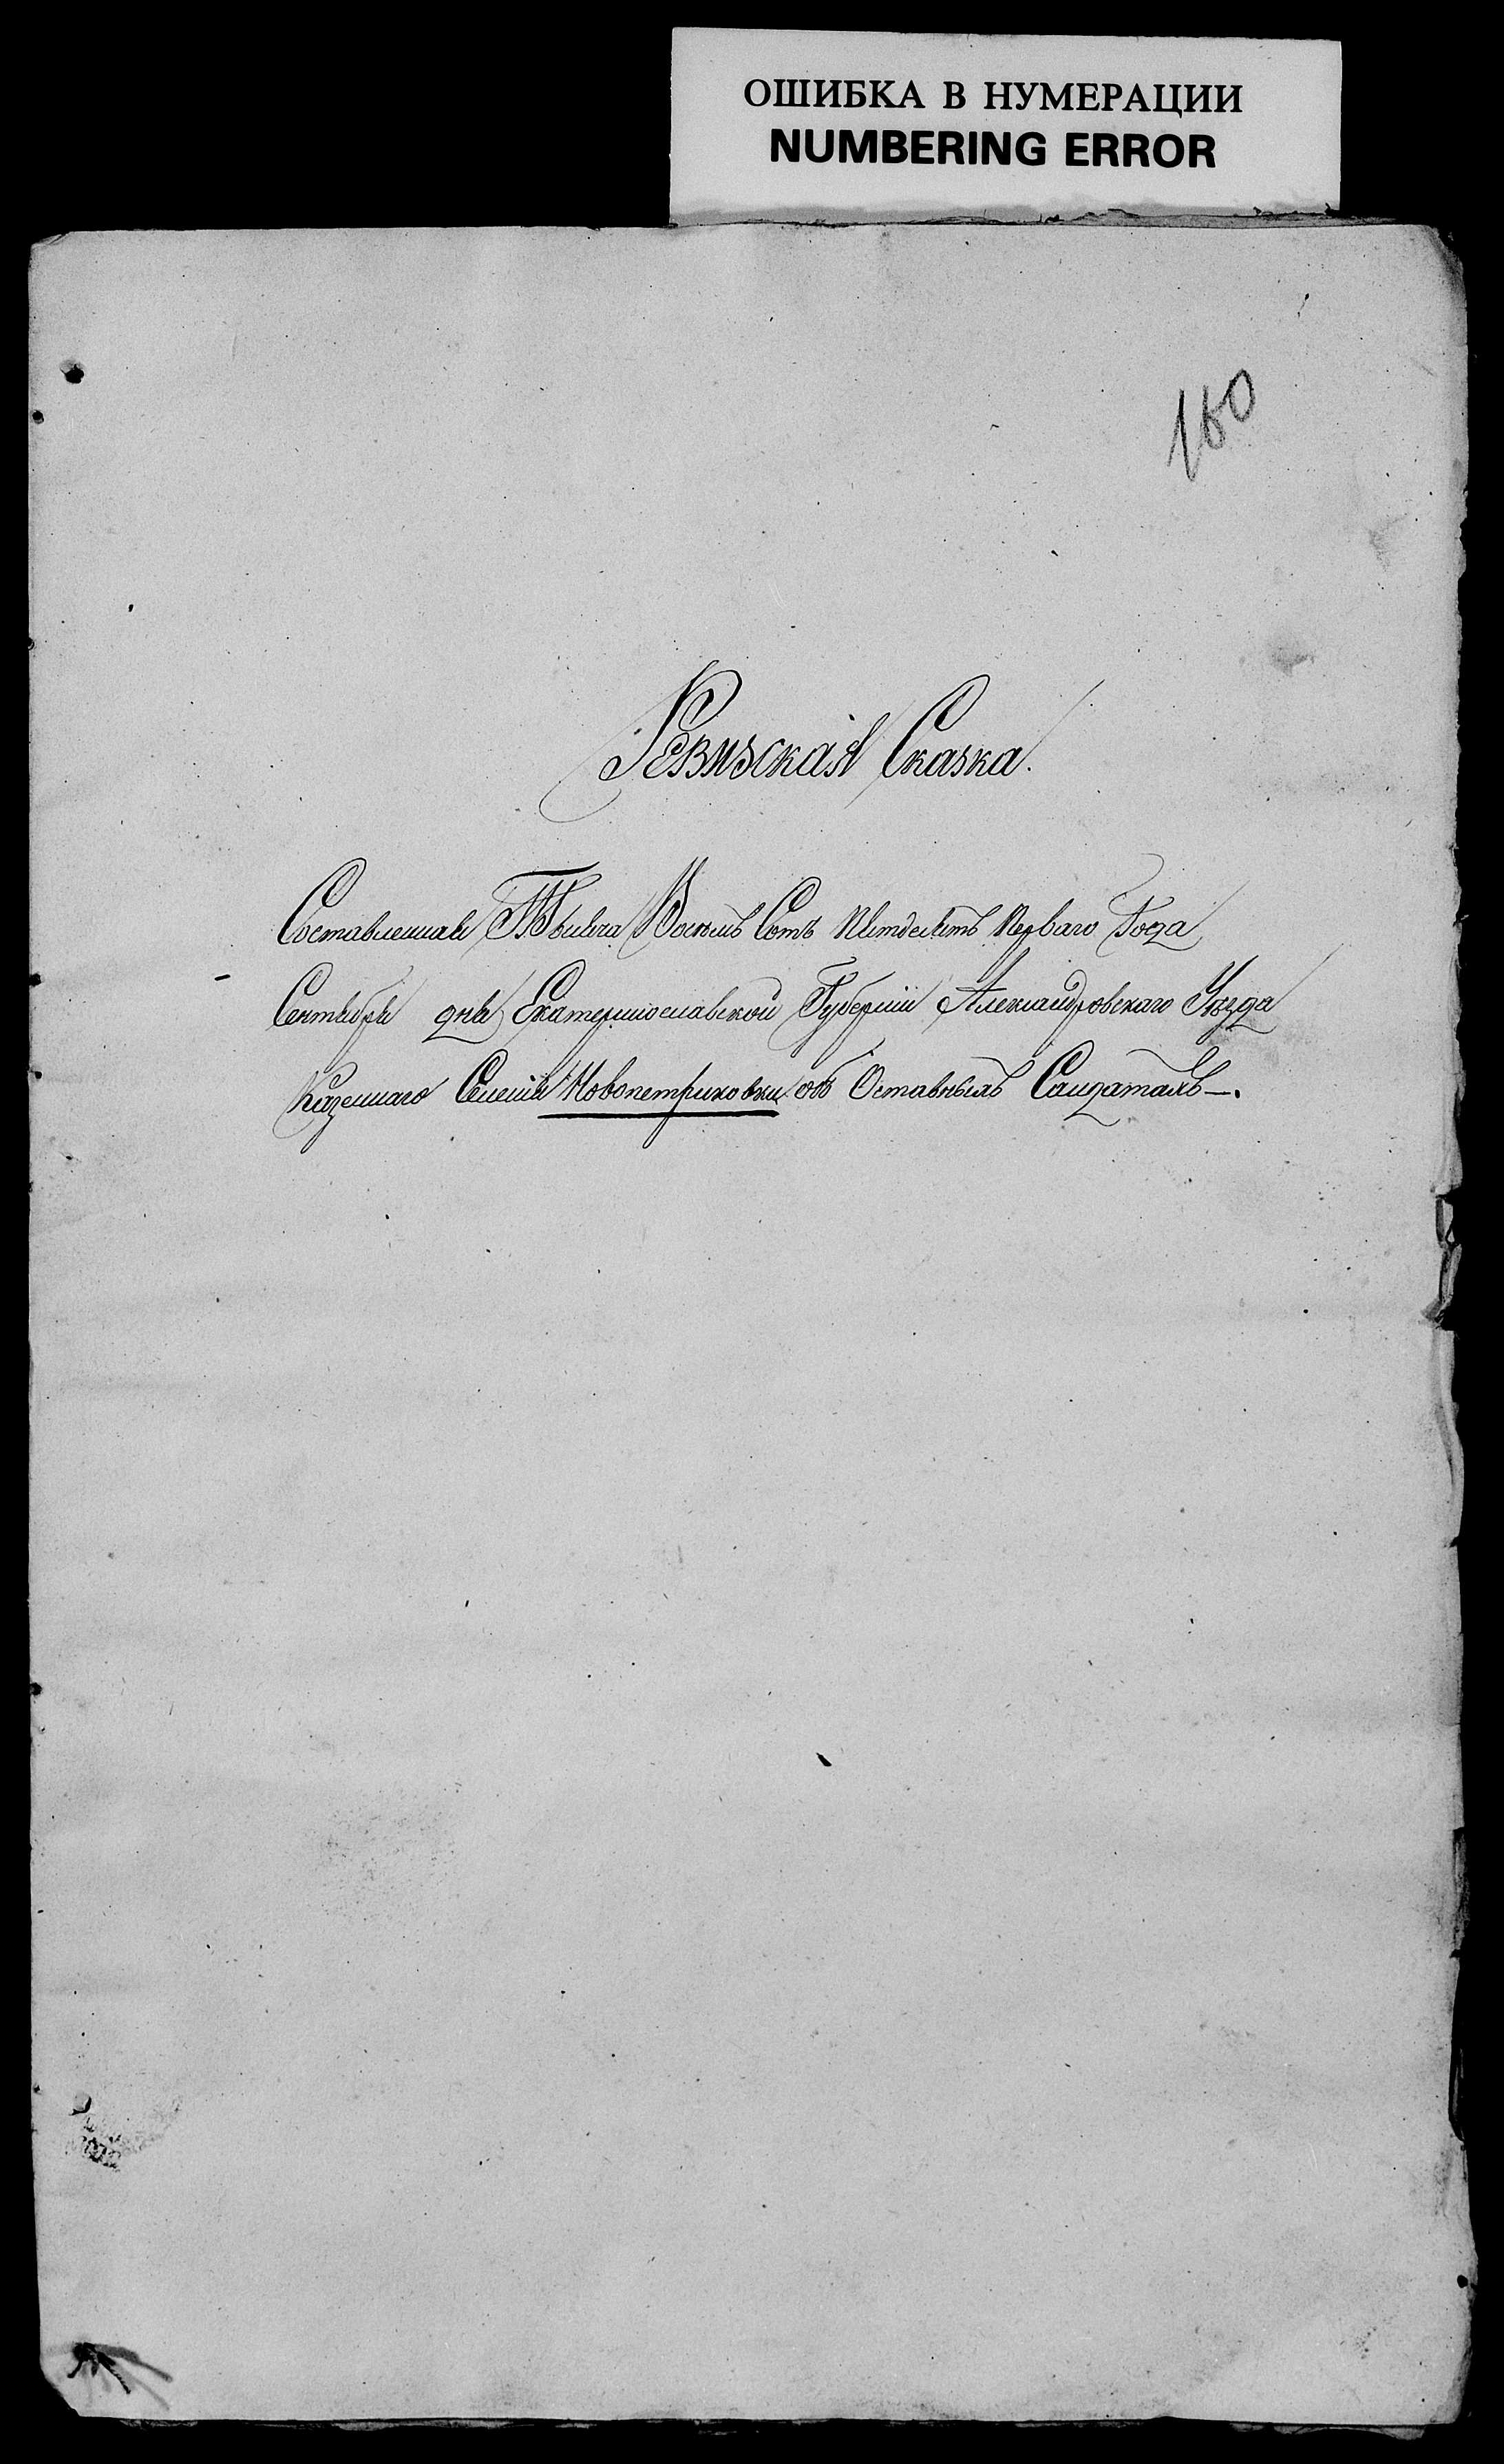 ОШИБКА В НУМЕРАЦИИ
NUMBERING ERROR
160
Ревизская Сказка.
Составленная Тысяча Восемь Сотъ Пятдесятъ Перваго Года
Сентября дня Екатеринославской Губерніи Александровскаго Уѣзда
Казеннаго Селенія Новопетриковки объ Оставныхъ Салдатахъ—.